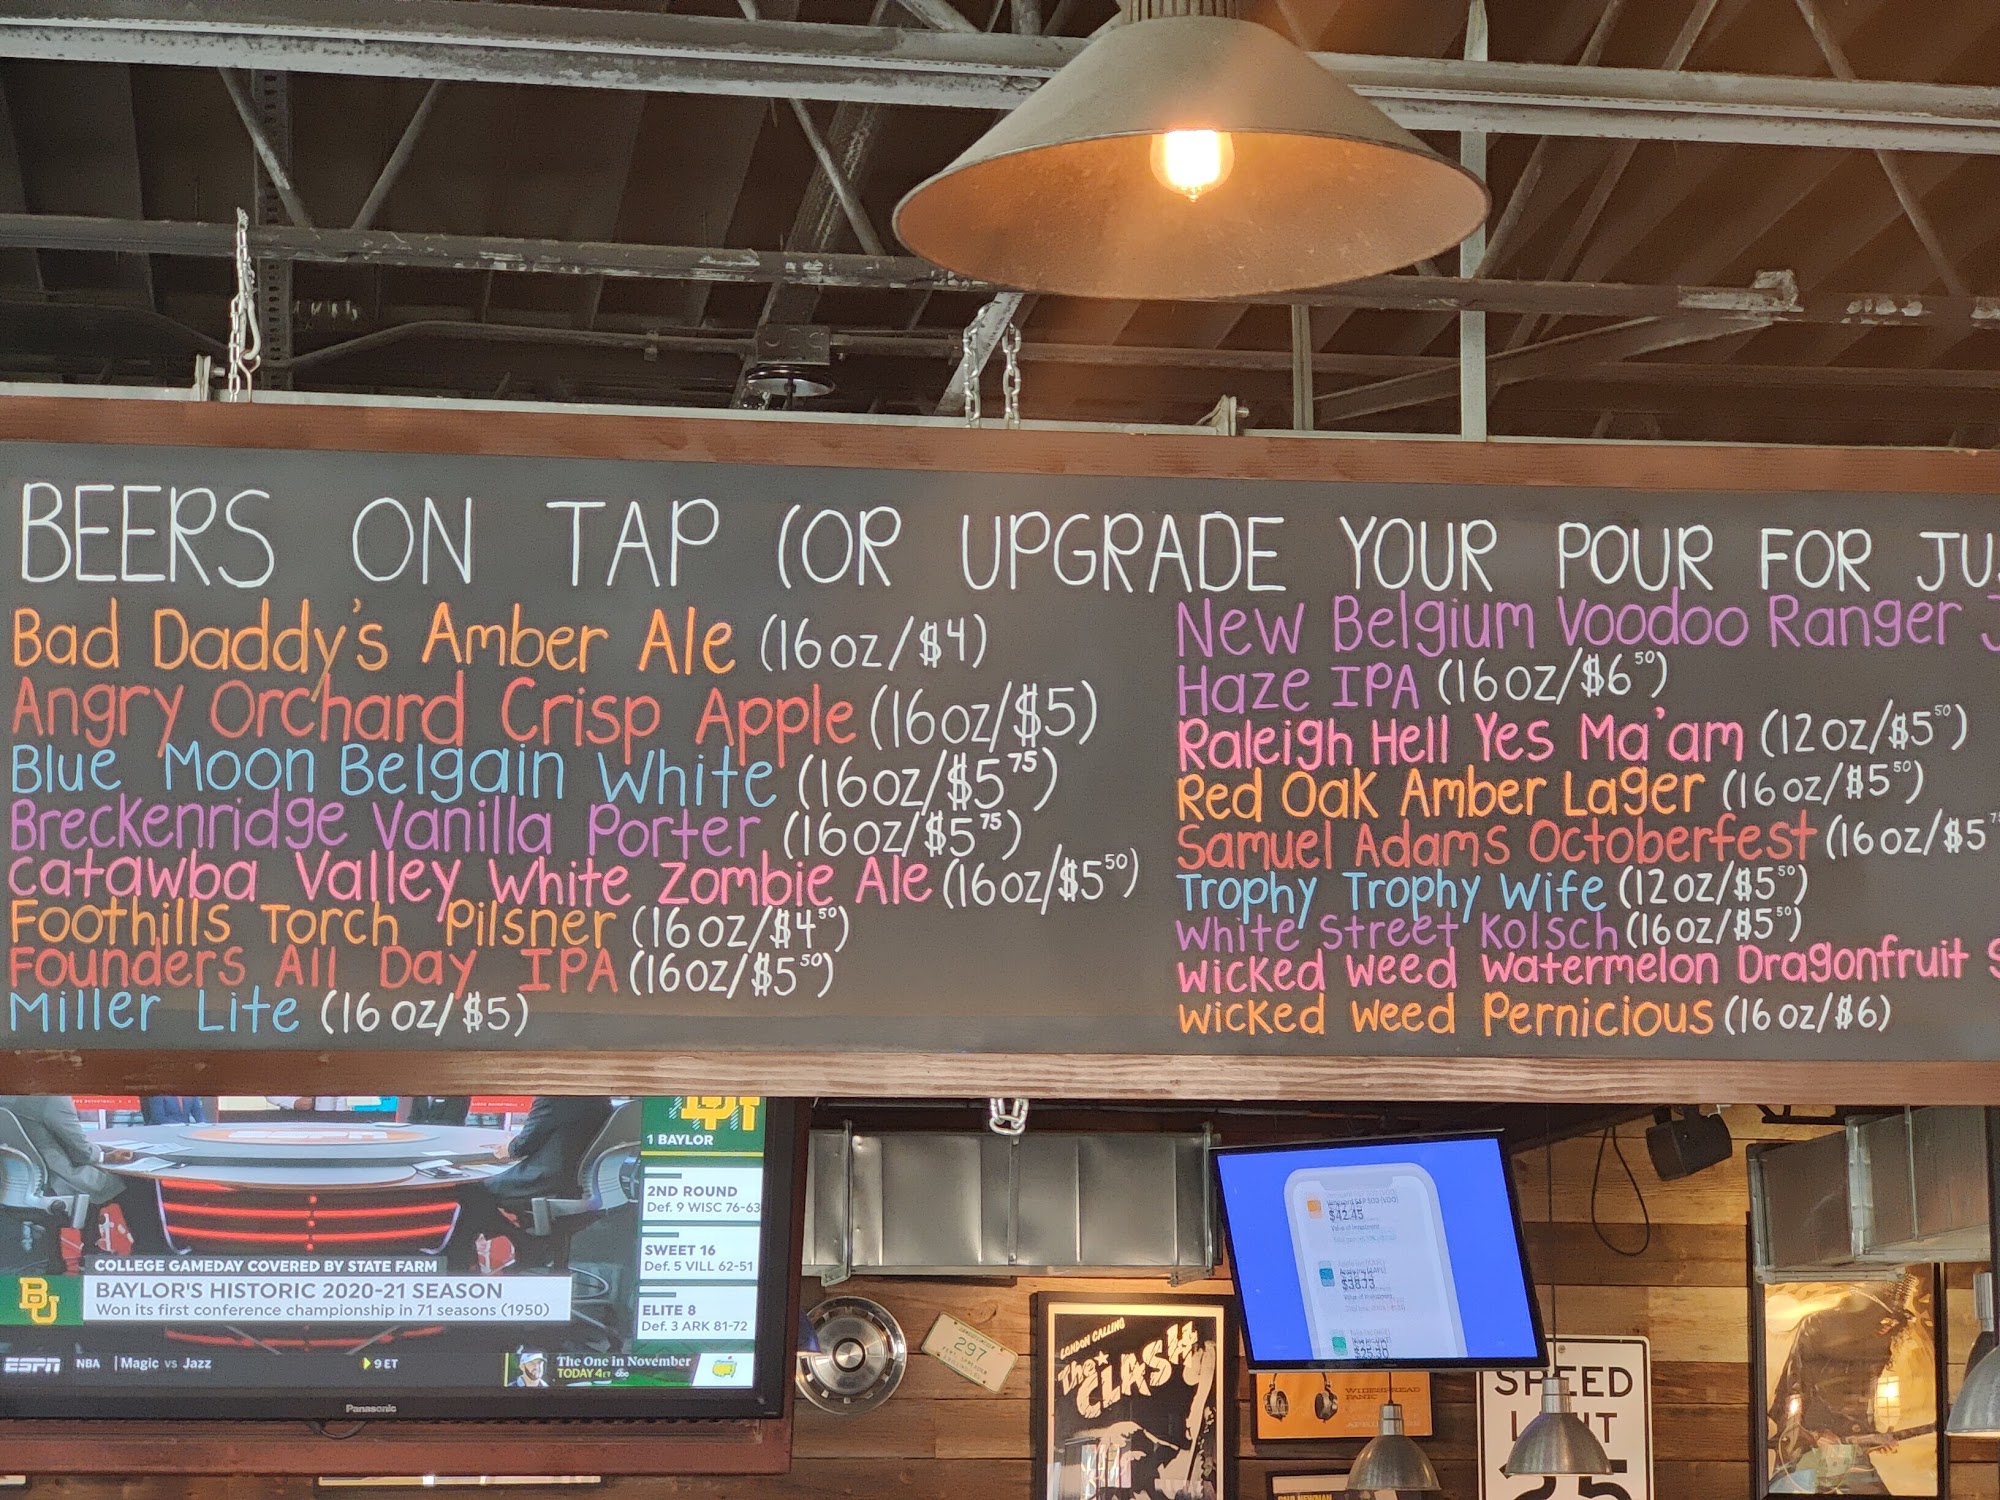 BEERS ON TAP (OR UPGRADE YOUR POUR FOR
Bad Daddy's Amber Ale (16oz/$4)
Angry Orchard Crisp Apple (16oz/$5)
Blue Moon Belgain White (16oz/$5 75)
Breckenridge Vanilla Porter (16oz/$5 75)
Catawba Valley White Zombie Ale (16oz/$5 50)
Foothills Torch Pilsner (16oz/$4 50)
Founders All Day IPA (16oz/$5 50)
Miller Lite (16oz/$5)
New Belgium Voodoo Ranger
Haze IPA (16oz/$6 50)
Raleigh Hell Yes Ma'am (12oz/$5 50)
Red Oak Amber Lager (16oz/$5 50)
Samuel Adams Octoberfest (16oz/$5
Trophy Trophy Wife (12oz/$5 50)
White Street Kolsch (16oz/$5 50)
Wicked Weed Watermelon Dragonfruit
Wicked Weed Pernicious (16oz/$6)
1 BAYLOR
2ND ROUND
Def. 9 WISC 76-63
SWEET 16
Def. 5 VILL 62-51
ELITE 8
Def. 3 ARK 81-72
COLLEGE GAMEDAY COVERED BY STATE FARM
BU
BAYLOR'S HISTORIC 2020-21 SEASON
Won its first conference championship in 71 seasons (1950)
ESPN NBA | Magic vs Jazz 9 ET
The One in November
TODAY 4 ET abc
Panasonic
297
LONDON CALLING
The CLASH
$42.45
$38.73
Value of Investment
WIDESPREAD
PANIC
SPEED
LIMIT
PAUL NEWMAN